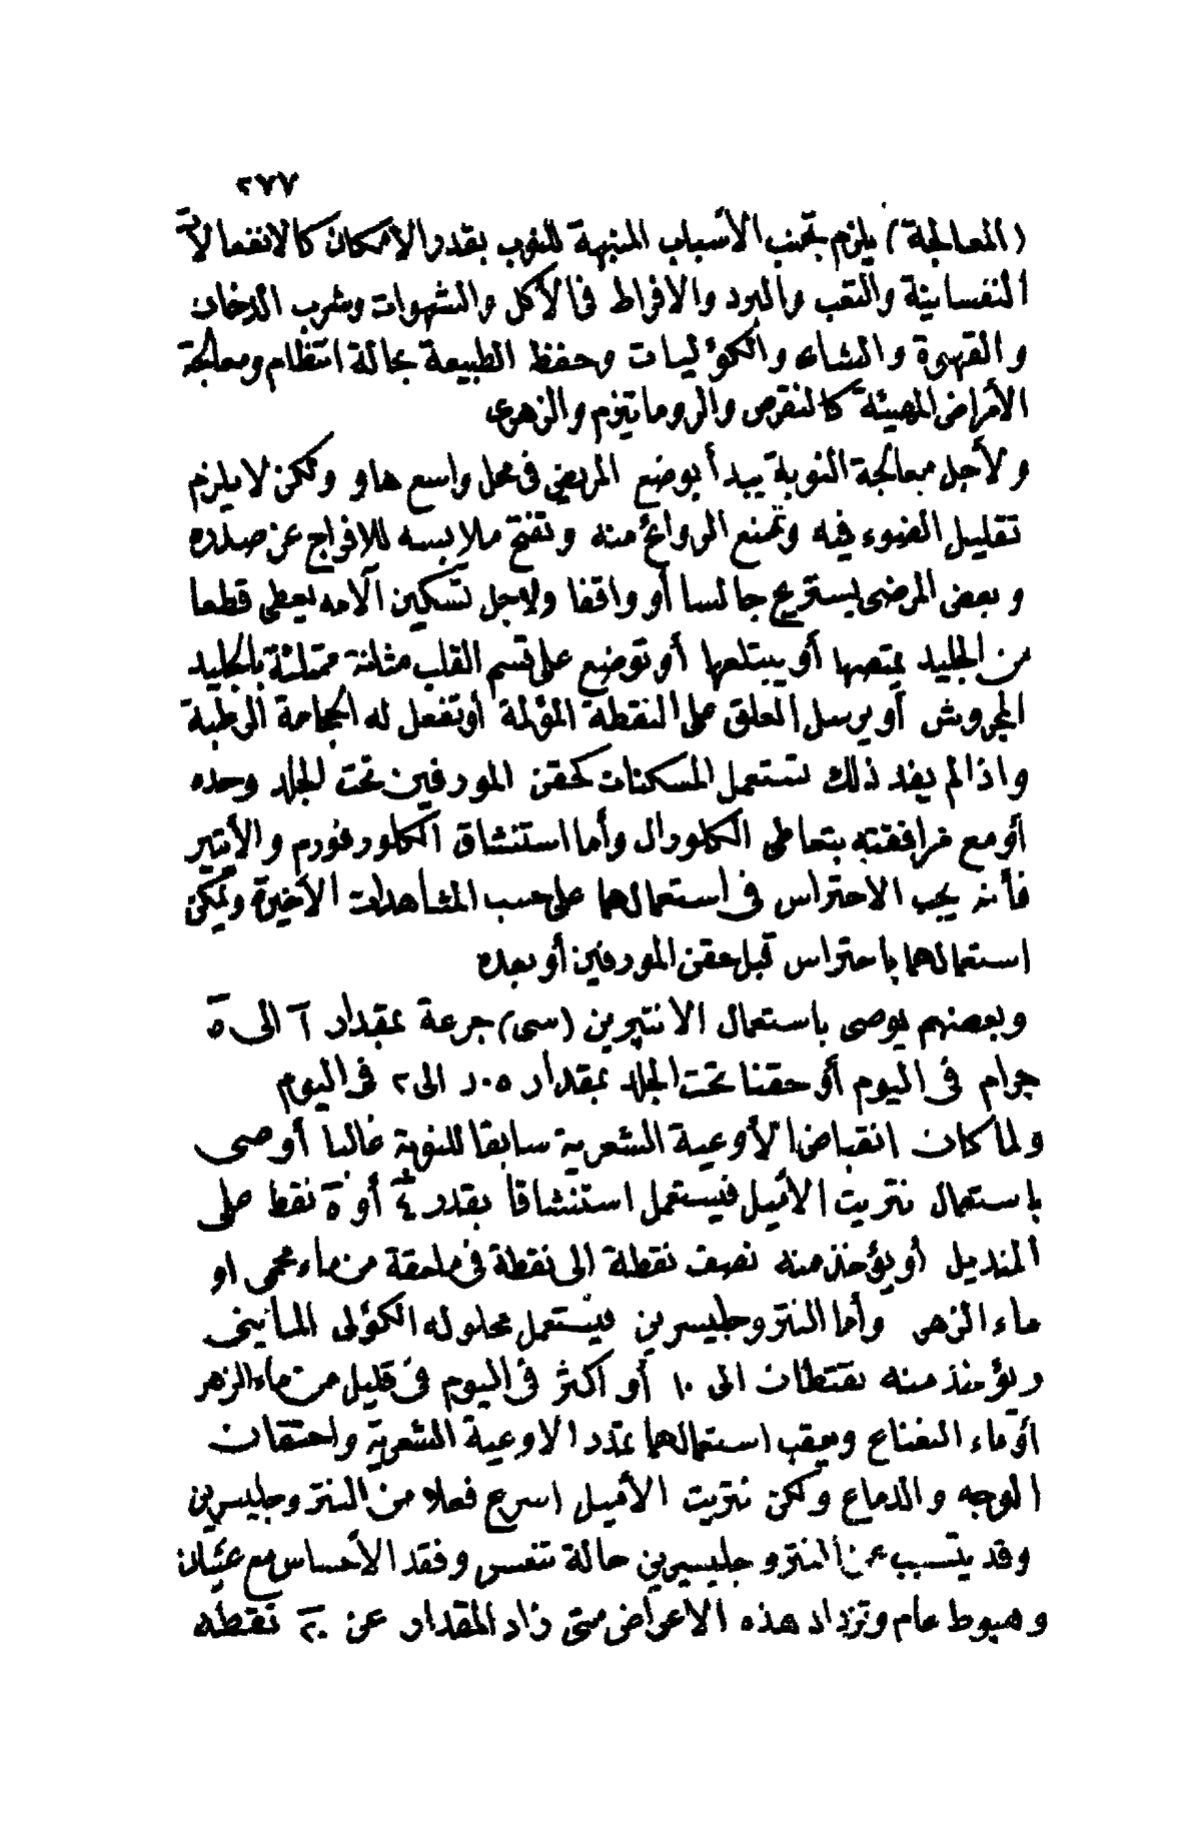 ٢٧٧
(المعالجة) يلزم تجنب الأسباب المنبهة للنوب بقدر الامكان كالانفعالات
النفسانية والتعب والبرد والافراط فى الأكل والشهوات وشرب الدخان
والقهوة والشاء والكؤليات وحفظ الطبيعة بحالة انتظام ومعالجة
الأمراض المهيئة كالنقرص والروماتيزم والزهرى
ولأجل معالجة النوبة يبدأ بوضع المريض فى محل واسع هاو ولكن لا يلزم
تقليل الضوء فيه وتمنع الروائح منه وتفتح ملابسه للافراج عن صدره
وبعض المرضى يستريح جالسا أو واقفا ولاجل تسكين آلامه يعطى قطعا
من الجليد يمتصها أو يبتلعها أو توضع على قسم القلب مثانة ممتلئة بالجليد
المجروش أو يرسل العلق على النقطة المؤلمة أو تفعل له الحجامة الرطبة
واذا لم يفد ذلك تستعمل المسكنات كحقن المورفين تحت الجلد وحده
أو مع مرافقته بتعاطى الكلورال وأما استنشاق الكلورفورم والأيتير
فأنه يجب الاحتراس فى استعمالهما على حسب المشاهدات الأخيرة ويمكن
استعمالهما باحتراس قبل حقن المورفين أو بعده
وبعضهم يوصى باستعمال الانتپرين (سى) جرعة بمقدار ٢ الى ٥
جرام فى اليوم أو حقنا تحت الجلد بمقدار ٠٥ر الى ٢ فى اليوم
ولما كان انقباض الأوعية الشعرية سابقا للنوبة غالبا أوصى
باستعمال نتريت الأميل فيستعمل استنشاقا بقدر ٤ أو ٥ نقط على
المنديل أو يؤخذ منه نصف نقطة الى نقطة فى ملعقة من ماء محمى او
ماء الزهر وأما النتروجليسرين فيستعمل محلوله الكؤلى المأينى
ويؤخذ منه نقتطان الى ١٠ أو اكثر فى اليوم فى قليل من ماء الزهر
أو ماء النعناع ويعقب استعمالهما تمدد الاوعية الشعرية واحتقان
الوجه والدماغ ولكن نتريت الأميل اسرع فعلا من النتروجليسرين
وقد يتسبب عن النتروجليسيرين حالة تنفس وفقد الأحساس مع غثيان
وهبوط عام وتزداد هذه الاعراض متى زاد المقدار عن ٢٠ نقطة